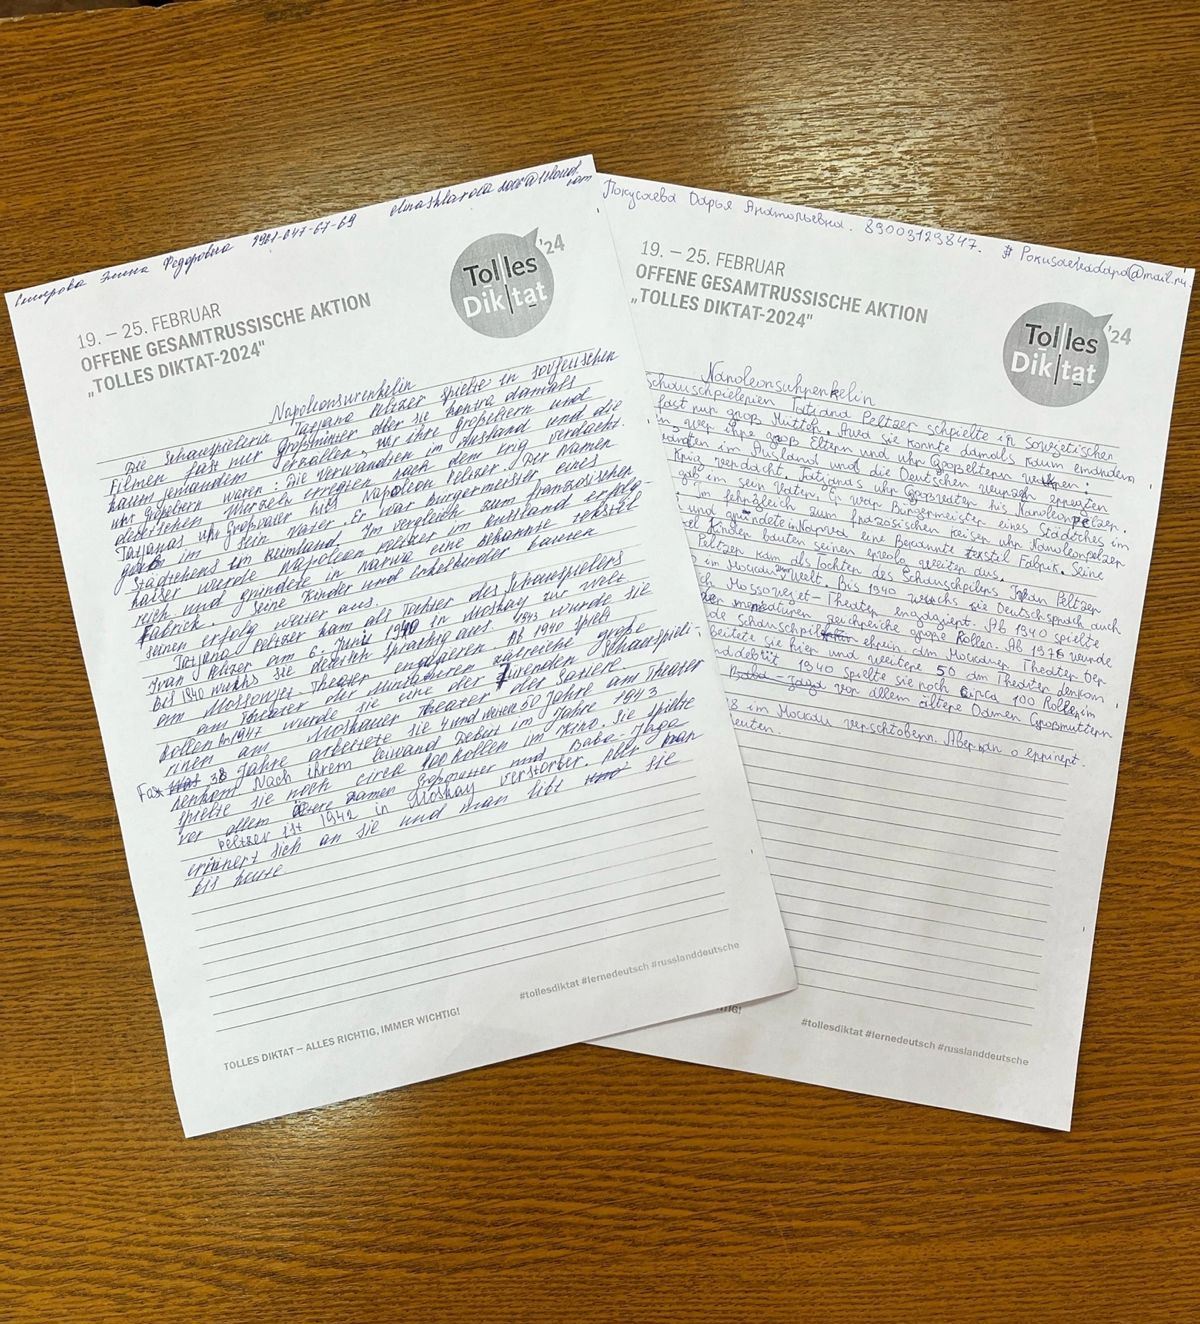 Элина Фёдоровна
19. – 25. FEBRUAR
OFFENE GESAMTRUSSISCHE AKTION
„TOLLES DIKTAT-2024"
Tolles
Diktat
'24
Napoleonsurenkelin
Die Schauspielerin Tatjana Peltzer spielte in sovjetischen
Filmen fast nur Großmütter aber sie konta damals
kaum jemandem erzallen, wer ihre großeltern und
uhr großeltern waren: Die Verwandten im Ausland und die
deutschen Wurzeln erregten nach dem krig verdacht.
Tatjanas uhr Großvater hiß Napoleon Peltzer. Der Namen
gab im sein Vater. Er war Bürgermeister eines
Städtchens im Reinland. Im vergleich zum französischen
kaiser werde Napoleon Peltzer im Russland erfolg-
reich und gründete in Narwa eine bekannte textil
Fabrick. Seine Kinder und enkelkinder bauten
seinen erfolg weiter aus.
Tatjana Peltzer kam als Tochter des Schauspielers
Ivan Peltzer am 6. Juni 1940 in Moskau zur welt
bis 1940 wuchs sie deutsch sprachig aus. 1943 wurde sie
am Mossowjet Theater engagieren. Ab 1940 spielt
am Theater der Miniaturen zälreiche große
Rollen in 1947 wurde sie eine der führenden Schauspiele-
rinen am Moskauer Theater des Satiere
Fast 38 Jahre arbeitete sie und weitere 50 Jahre am Theater
Lenkom Nach ihrem Leiwand Debüt im Jahre 1943
spielte sie noch circa 100 Rollen im Kino. Sie spielte
vor allem ältere Damen Großmütter und Baba-Jaga
Peltzer ist 1942 in Moskau verstorber. Aber man
erinnert sich an sie und man libt sie
bis heute
#tollesdiktat #lernedeutsch #russlanddeutsche
TOLLES DIKTAT – ALLES RICHTIG, IMMER WICHTIG!
Покусаева Дарья Анатольевна. 89003129847. # Pokusaevadara@mail.ru
19. – 25. FEBRUAR
OFFENE GESAMTRUSSISCHE AKTION
„TOLLES DIKTAT-2024"
Tolles
Diktat
'24
Napoleonsuhrenkelin
Schauschpielerien Tatiana Peltzer schpielte in Sowjetischer
fast nur groß Mutter. Awa sie konnte damals kaum emandem
wer ihre groß Eltern und uhr Großeltern waren:
im Ausland und die Deutschen wurzeln erregten
Krig verdacht. Tatjanas uhr Großvater his Napoleon Peltzer.
gab im sein Vater. Er war Bürgermeister eines Städtches im
Im fehrgleich zum französischen Keiser uhr Napoleonpeltzer
und gründete in Narwa eine Bekannte textil Fabrik. Seine
Kinder bauten seinen erfolg weiter aus.
Peltzer kam als Tochter des Schauschpilers Ivan Peltzer
im Moskau zur Welt. Bis 1940 wuchs sie Deutschsprach auch
Mossovejet-Theater engagiert. Ab 1940 spielte
der menaturen zeichreiche große Rollen. Ab 1976 wurde
Schauschpilerin am Moskauer Theater der
beitete sie hier und weitere 50 am Theater Lenkom
debüt 1940 spielte sie noch circa 100 Rollen im
Baba-Jaga vor allem ältere Damen Großmuttern
im Moskau verschtobern. Aber man
heuten.
#tollesdiktat #lernedeutsch #russlanddeutsche